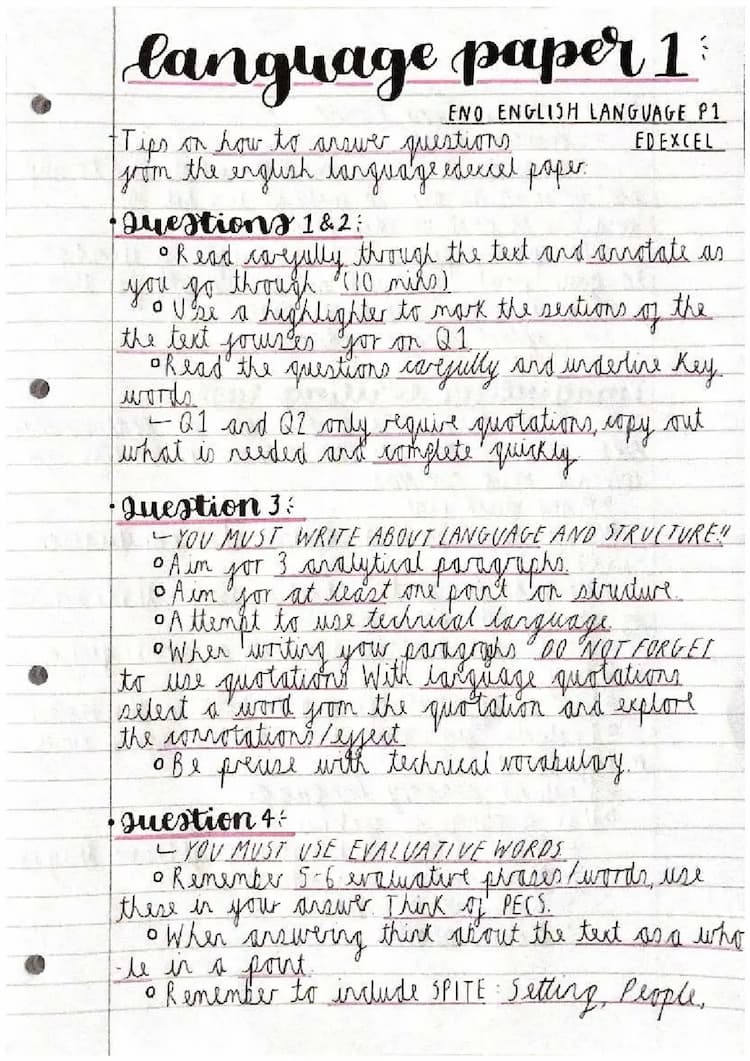 language paper 1:
ENO ENGLISH LANGUAGE P1
EDEXCEL
Tips on how to answer questions
from the english language edexcel paper.
• Questions 1&2:
° Read carefully through the text and annotate as
you go through (10 mins)
° Use a highlighter to mark the sections of the
the text focuses for on Q1
° Read the questions carefully and underline key
words
– Q1 and Q2 only require quotations, copy out
what is needed and complete quickly
• Question 3:
↳ YOU MUST WRITE ABOUT LANGUAGE AND STRUCTURE!!
° Aim for 3 analytical paragraphs.
° Aim for at least one point on structure.
° Attempt to use technical language
° When writing your paragraphs DO NOT FORGET
to use quotations With language quotations
select a word from the quotation and explore
the connotations/effect
° Be precise with technical vocabulary.
• Question 4:
↳ YOU MUST USE EVALUATIVE WORDS
° Remember 5-6 evaluative phrases/words, use
these in your answer. Think of PECS.
° When answering think about the text as a who
-le in a point.
° Remember to include SPITE: Setting, People,